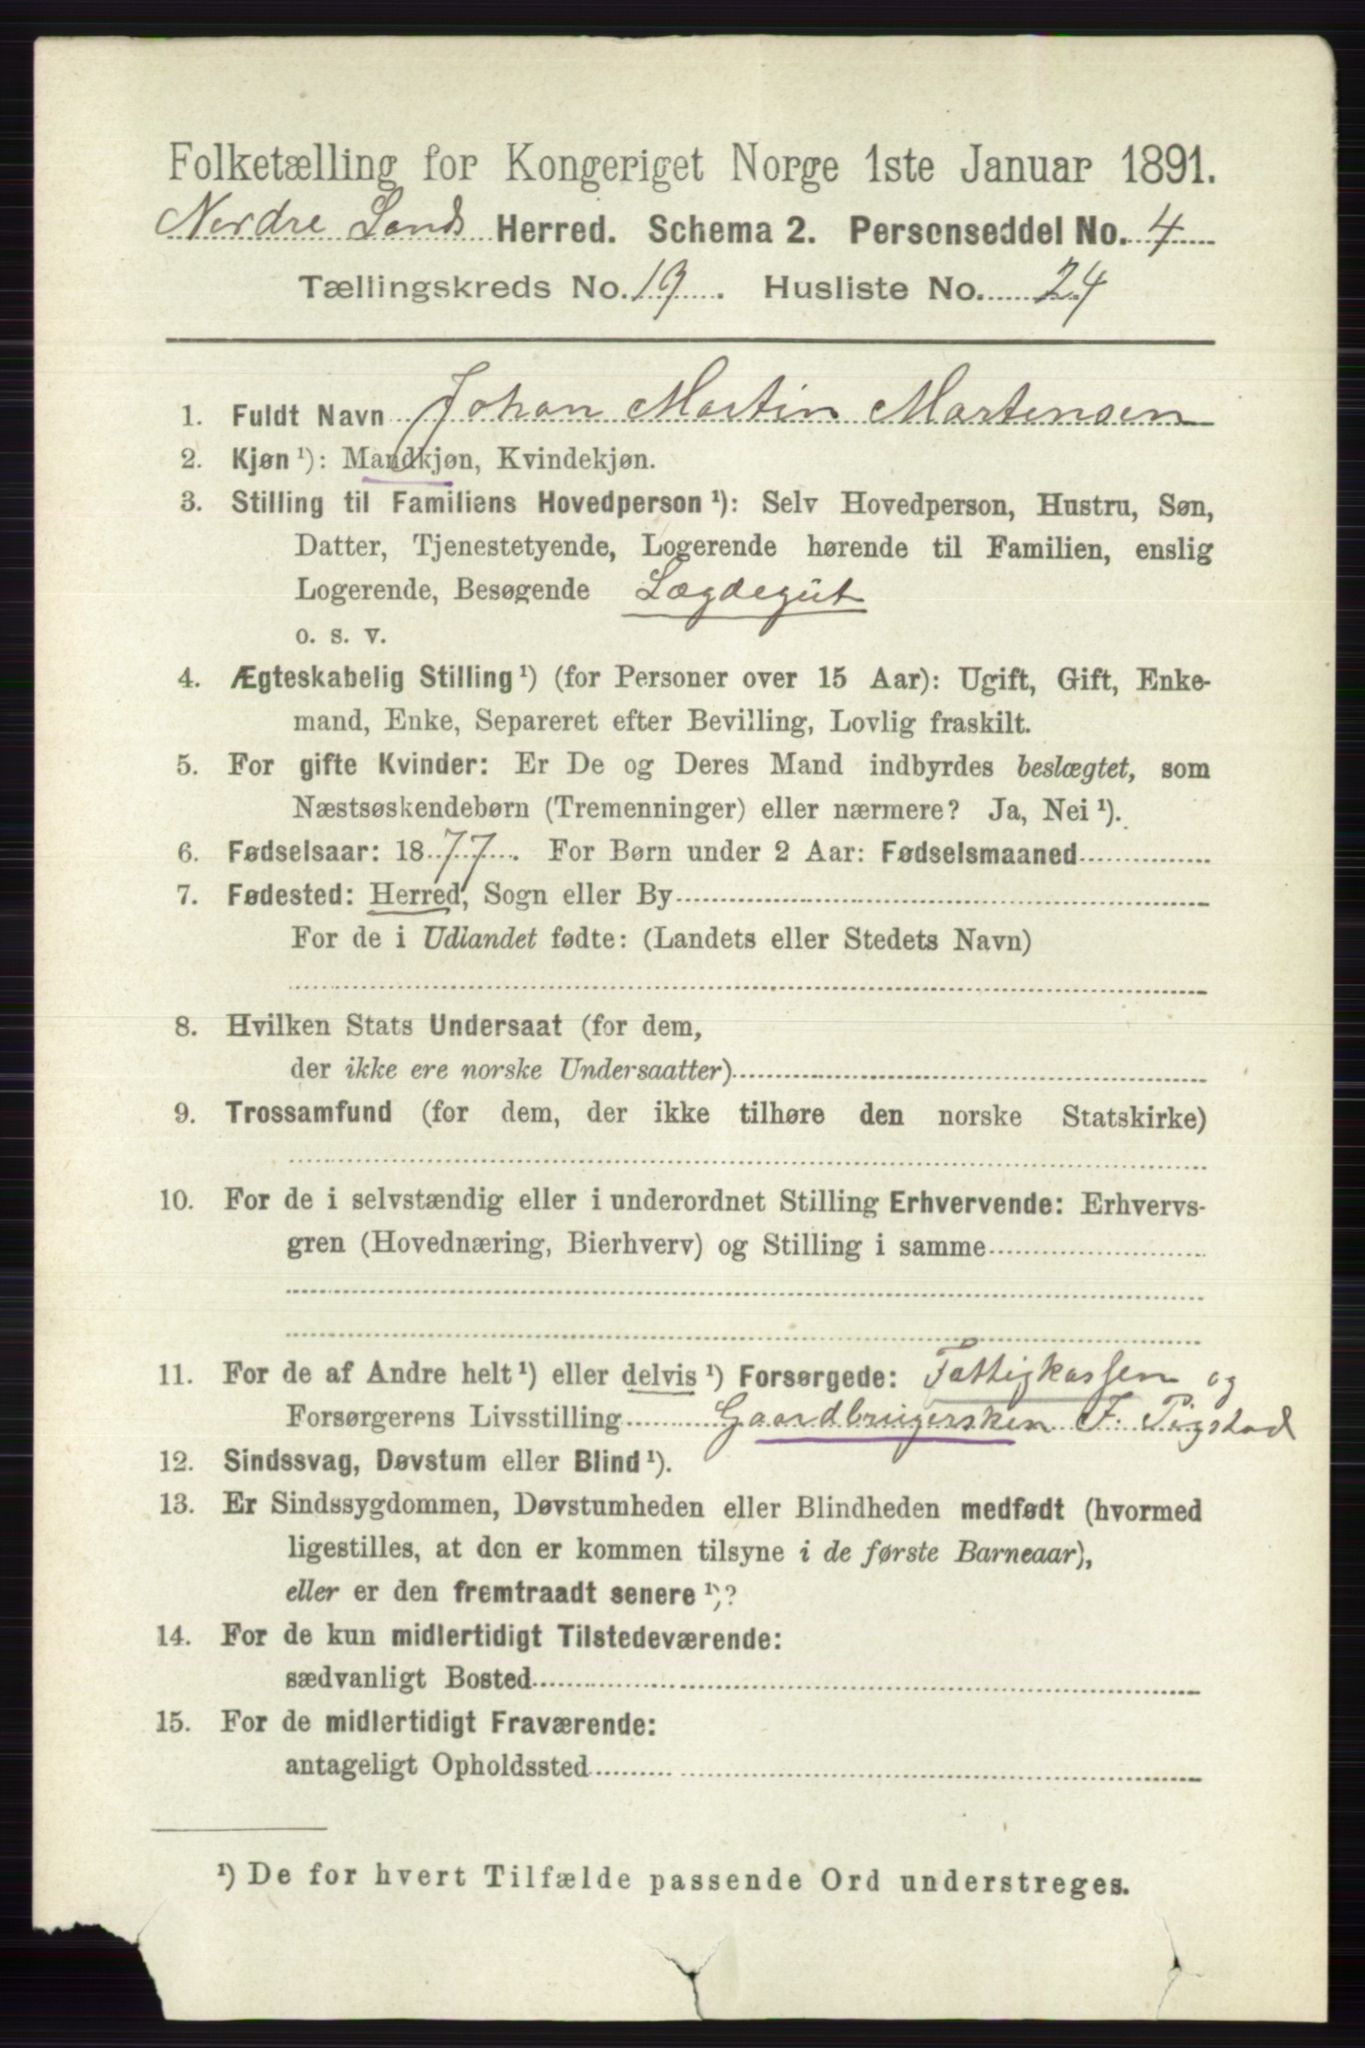 Folketælling for Kongeriget Norge 1ste Januar 1891.
Nordre Lands Herred. Schema 2. Personseddel No. 4
Tællingskreds No. 19. Husliste No. 24
1. Fuldt Navn Johan Martin Martensen
2. Kjøn ¹): Mandkjøn, Kvindekjøn.
3. Stilling til Familiens Hovedperson ¹): Selv Hovedperson, Hustru, Søn,
Datter, Tjenestetyende, Logerende hørende til Familien, enslig
Logerende, Besøgende Lægdegut
o. s. v.
4. Ægteskabelig Stilling ¹) (for Personer over 15 Aar): Ugift, Gift, Enke-
mand, Enke, Separeret efter Bevilling, Lovlig fraskilt.
5. For gifte Kvinder: Er De og Deres Mand indbyrdes beslægtet, som
Næstsøskendebørn (Tremenninger) eller nærmere? Ja, Nei ¹).
6. Fødselsaar: 1877. For Børn under 2 Aar: Fødselsmaaned
7. Fødested: Herred, Sogn eller By
For de i Udlandet fødte: (Landets eller Stedets Navn)
8. Hvilken Stats Undersaat (for dem,
der ikke ere norske Undersaatter)
9. Trossamfund (for dem, der ikke tilhøre den norske Statskirke)
10. For de i selvstændig eller i underordnet Stilling Erhvervende: Erhvervs-
gren (Hovednæring, Bierhverv) og Stilling i samme
11. For de af Andre helt ¹) eller delvis ¹) Forsørgede: Fattigkassen og
Forsørgerens Livsstilling Gaardbrugersken F. Pigstad
12. Sindssvag, Døvstum eller Blind ¹).
13. Er Sindssygdommen, Døvstumheden eller Blindheden medfødt (hvormed
ligestilles, at den er kommen tilsyne i de første Barneaar),
eller er den fremtraadt senere ¹)?
14. For de kun midlertidigt Tilstedeværende:
sædvanligt Bosted
15. For de midlertidigt Fraværende:
antageligt Opholdssted
¹) De for hvert Tilfælde passende Ord understreges.